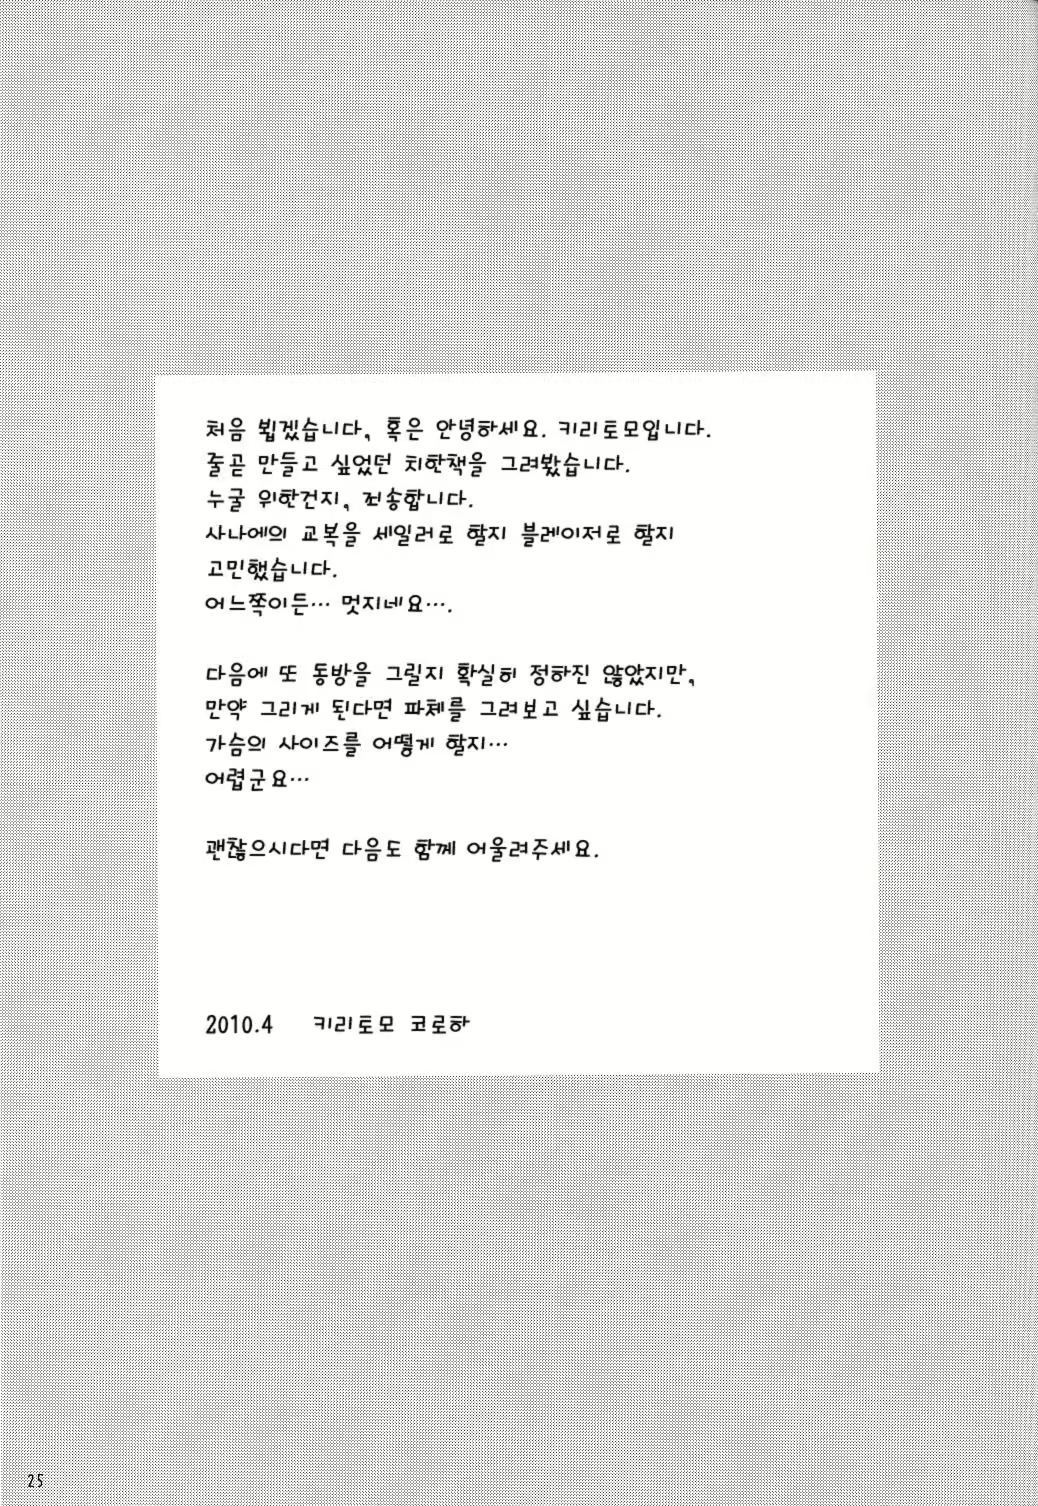 처음 뵙겠습니다, 혹은 안녕하세요. 키리토모입니다.
줄곧 만들고 싶었던 치한책을 그려봤습니다.
누굴 위한건지, 죄송합니다.
사나에의 교복을 세일러로 할지 블레이저로 할지
고민했습니다.
어느쪽이든… 멋지네요….
다음에 또 동방을 그릴지 확실히 정하진 않았지만,
만약 그리게 된다면 파체를 그려보고 싶습니다.
가슴의 사이즈를 어떻게 할지…
어렵군요…
괜찮으시다면 다음도 함께 어울려주세요.
2010.4 키리토모 코로하
25